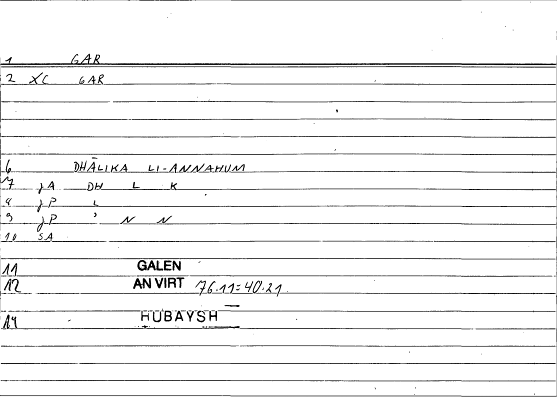 1 GAR
2 XC GAR
6 DHĀLIKA LI-ANNAHUM
7 JA DH L K
8 JP L
9 JP ' N N
10 SA
11 GALEN
12 AN VIRT 76.11=40.21
14 HUBAYSH